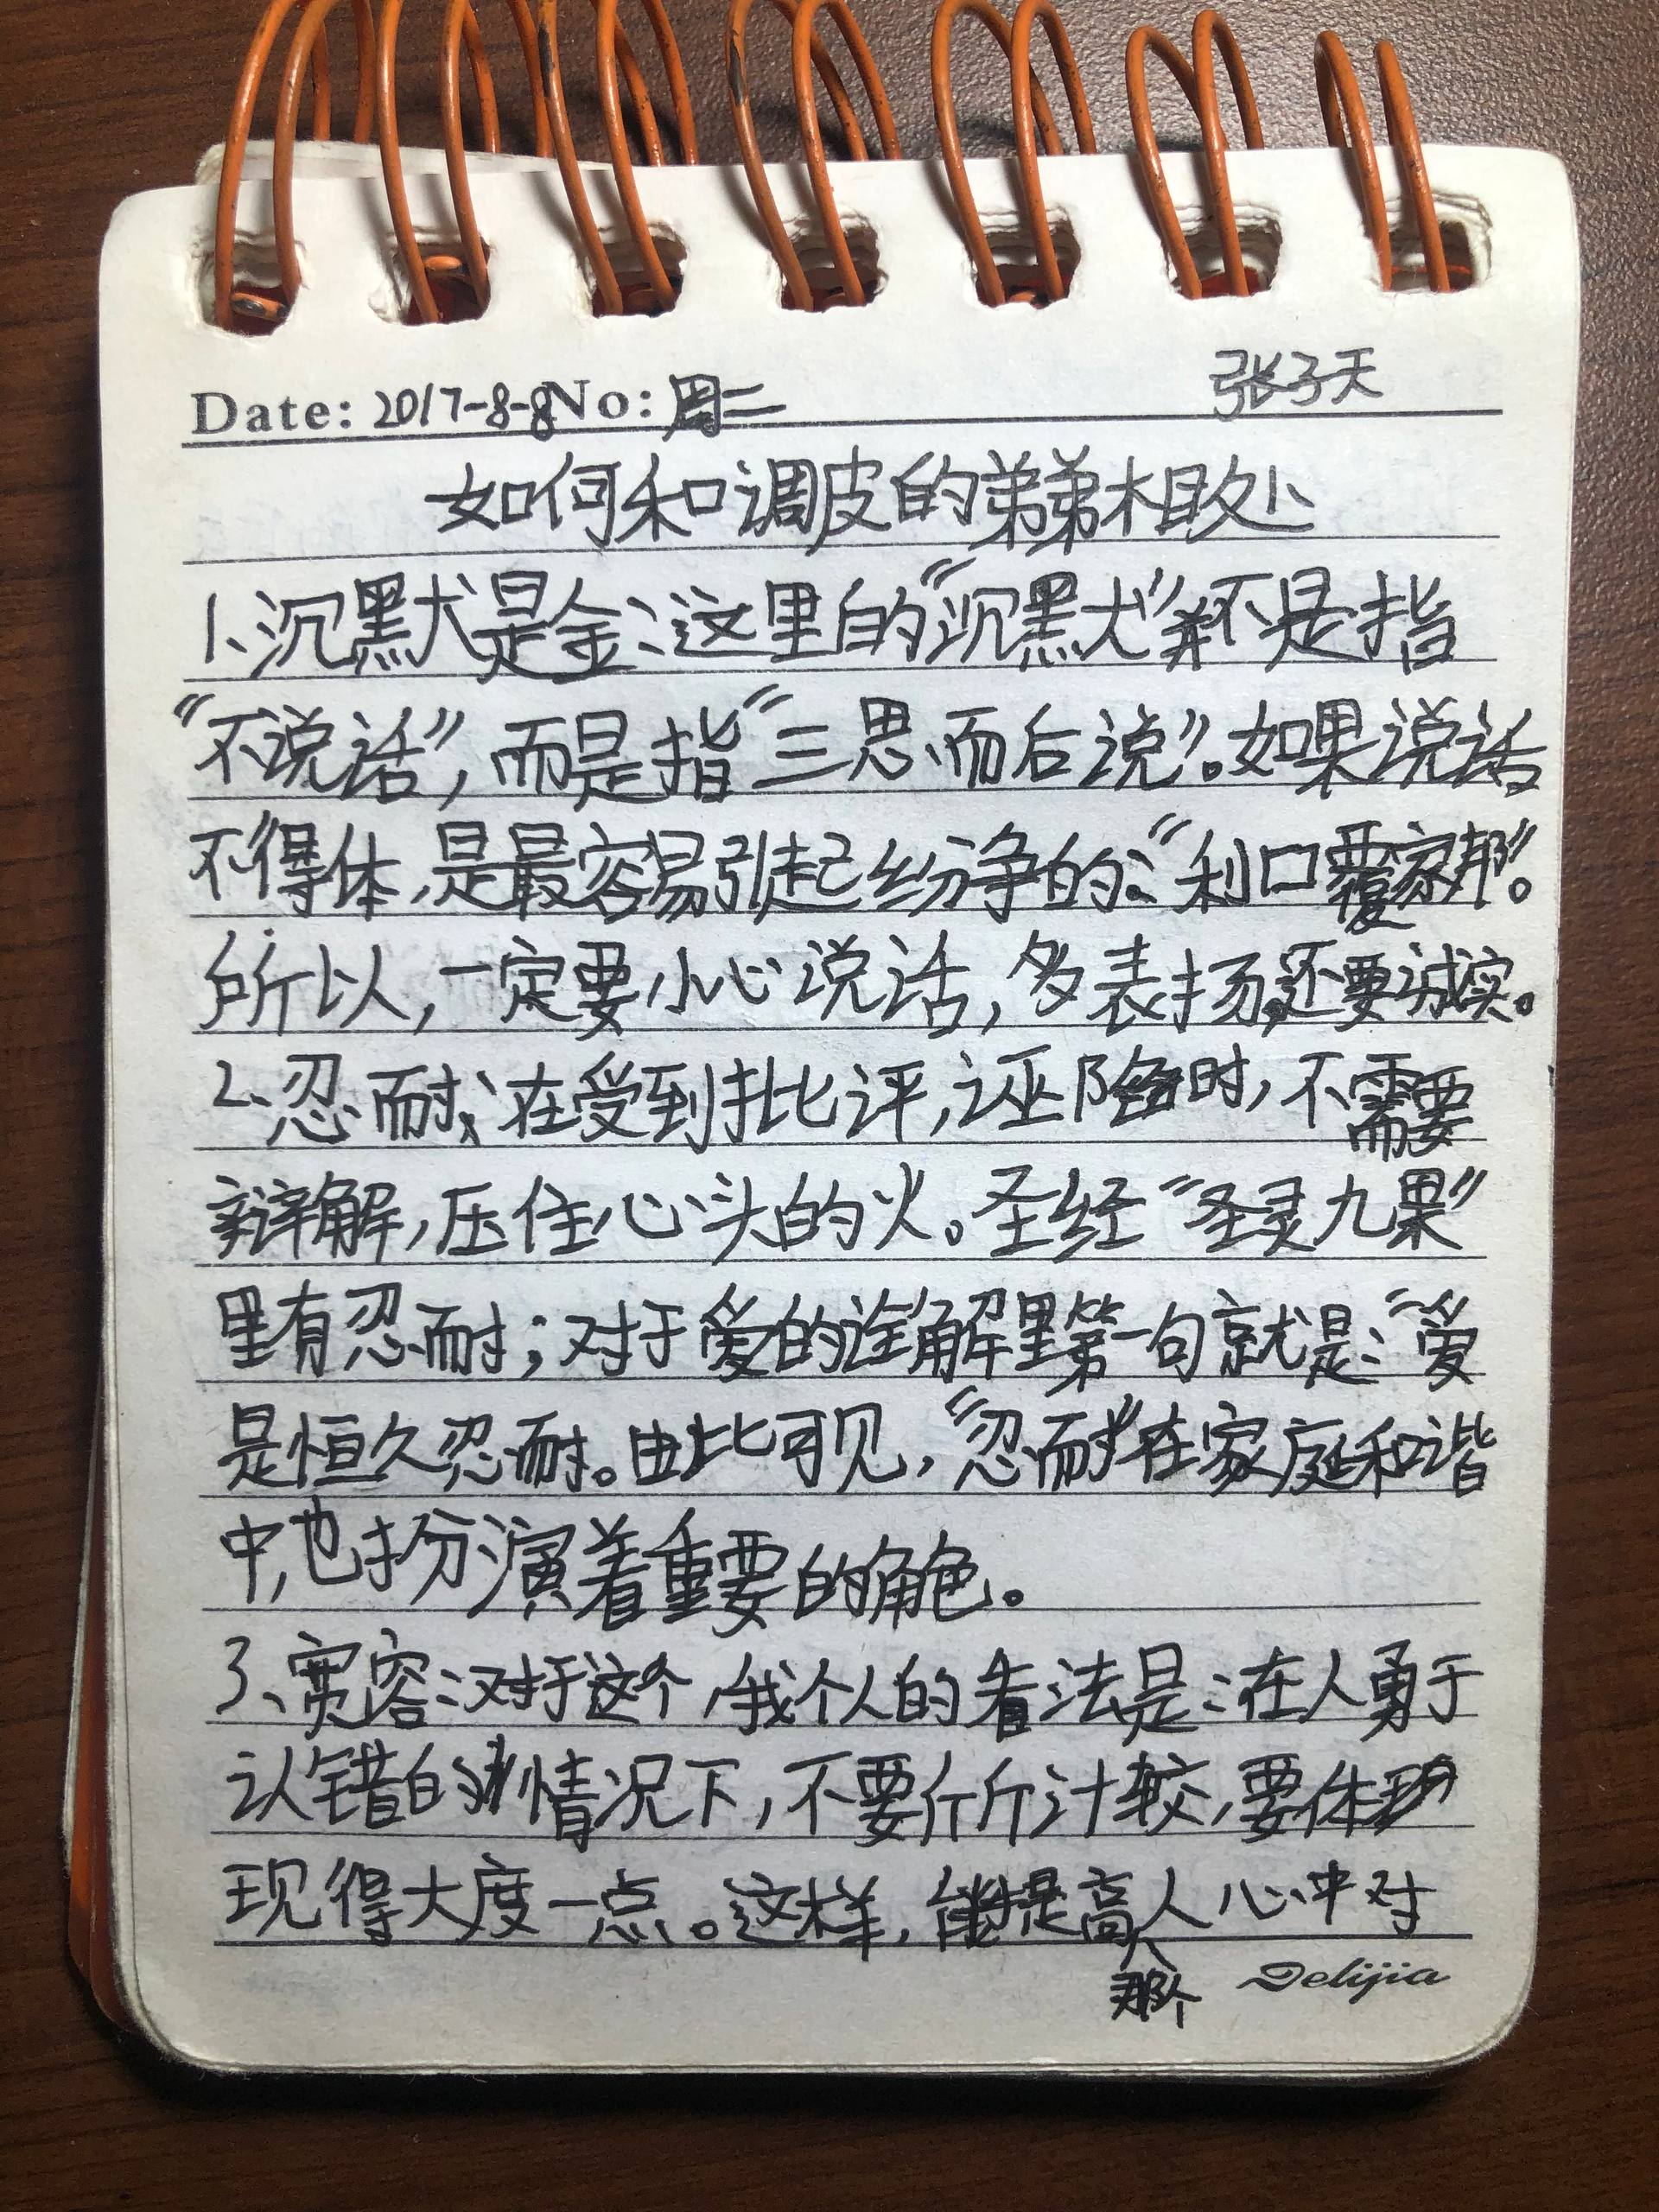 Date: 2017-8-8 No: 周二 张子天
如何和调皮的弟弟相处
1、沉默是金:这里的“沉默”并不是指
“不说话”,而是指“三思而后说”。如果说话
不得体,是最容易引起纷争的:“利口覆家邦”。
所以,一定要小心说话,多表扬,还要诚实。
2、忍耐:在受到批评,诬陷时,不需要
辩解,压住心头的火。圣经“圣灵九果”
里有忍耐;对于爱的诠解里第一句就是:“爱
是恒久忍耐。由此可见,“忍耐”在家庭和谐
中,也扮演着重要的角色。
3、宽容:对于这个,我个人的看法是:在人勇于
认错的情况下,不要斤斤计较,要体
现得大度一点。这样,能提高人心中对
那个
Delijia